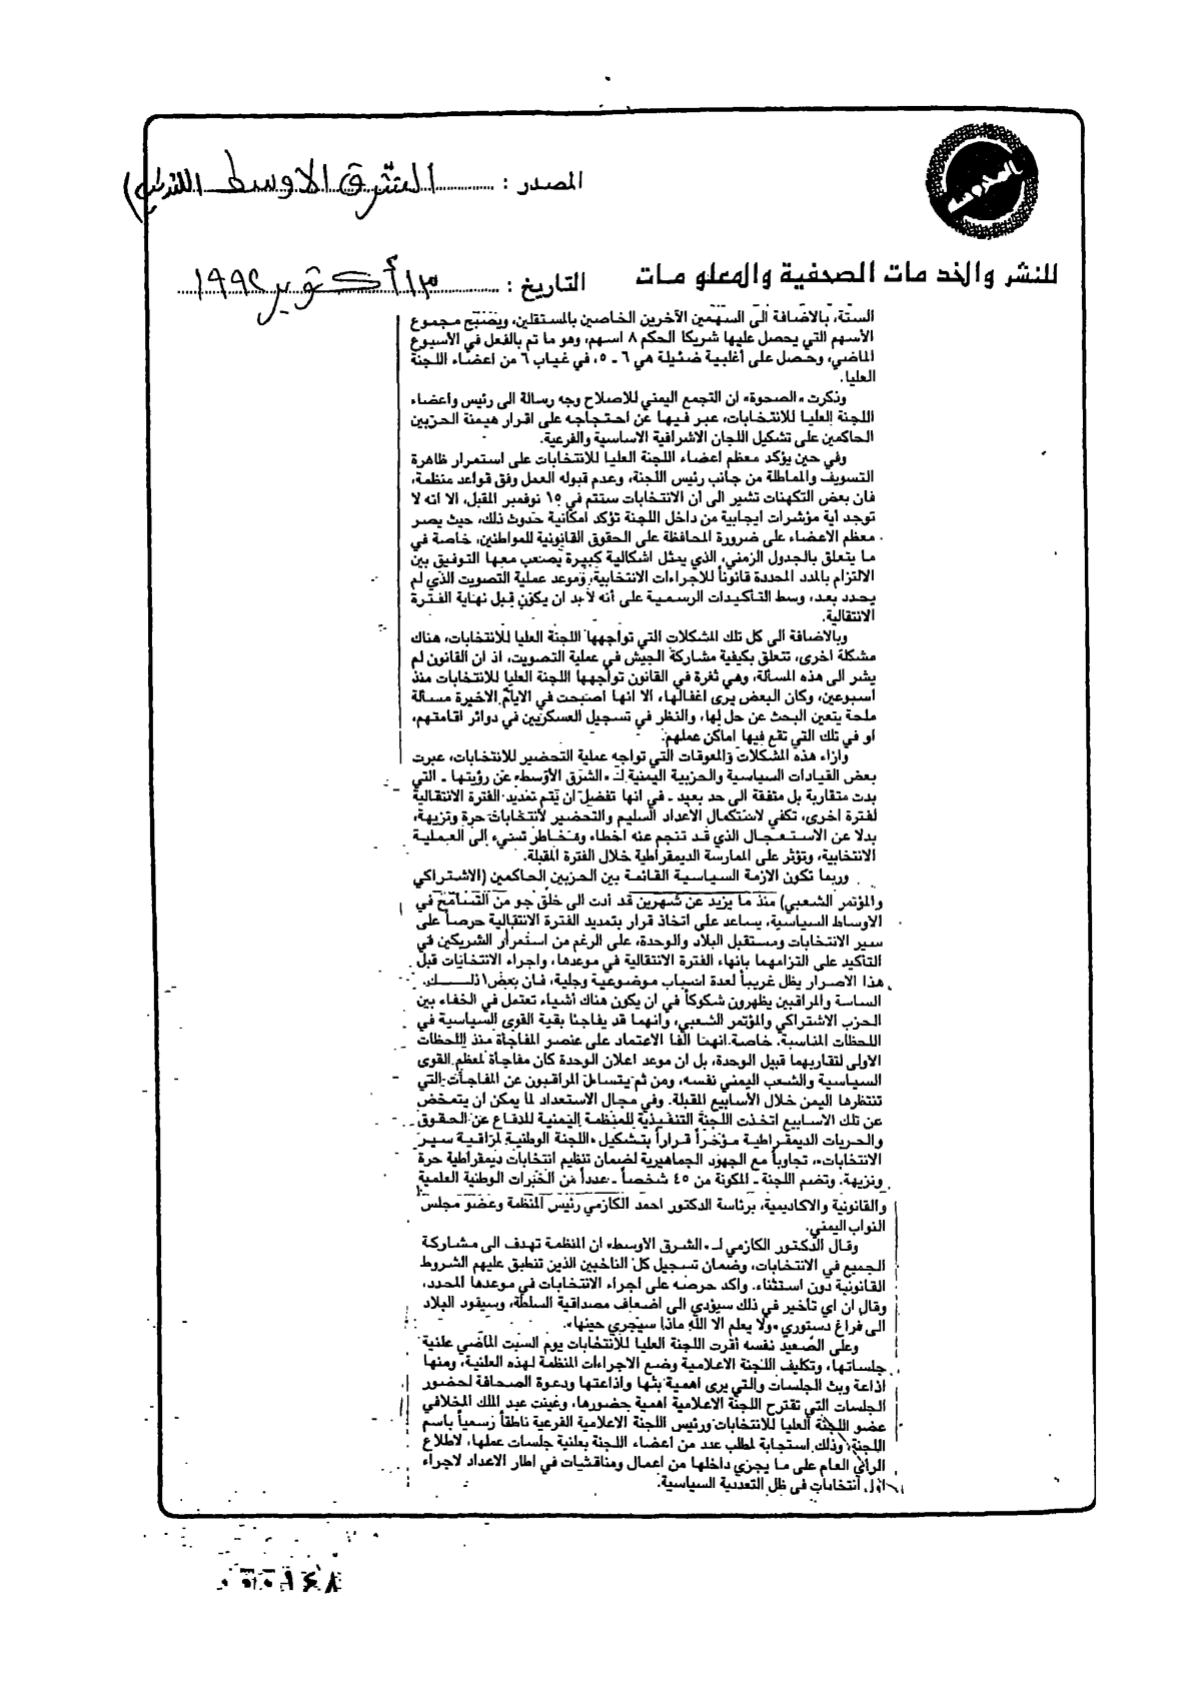 المصدر : الشرق الاوسط (اللندنية)
للنشر والخدمات الصحفية والمعلومات
التاريخ : ١٣ أكتوبر ١٩٩٢
الستة، بالاضافة الى السهمين الآخرين الخاصين بالمستقلين، ويصبح مجموع
الأسهم التي يحصل عليها شريكا الحكم ٨ اسهم، وهو ما تم بالفعل في الأسبوع
الماضي، وحصل على أغلبية ضئيلة هي ٦ ـ ٥، في غياب ٦ من اعضاء اللجنة
العليا.
وذكرت «الصحوة» ان التجمع اليمني للاصلاح وجه رسالة الى رئيس واعضاء
اللجنة العليا للانتخابات، عبر فيها عن احتجاجه على اقرار هيمنة الحزبين
الحاكمين على تشكيل اللجان الاشرافية الاساسية والفرعية.
وفي حين يؤكد معظم اعضاء اللجنة العليا للانتخابات على استمرار ظاهرة
التسويف والمماطلة من جانب رئيس اللجنة، وعدم قبوله العمل وفق قواعد منظمة،
فان بعض التكهنات تشير الى أن الانتخابات ستتم في ١٥ نوفمبر المقبل، الا انه لا
توجد أية مؤشرات ايجابية من داخل اللجنة تؤكد امكانية حدوث ذلك، حيث يصر
معظم الاعضاء على ضرورة المحافظة على الحقوق القانونية للمواطنين، خاصة في
ما يتعلق بالجدول الزمني، الذي يمثل اشكالية كبيرة يصعب معها التوفيق بين
الالتزام بالمدد المحددة قانوناً للاجراءات الانتخابية، وموعد عملية التصويت الذي لم
يحدد بعد، وسط التأكيدات الرسمية على أنه لابد ان يكون قبل نهاية الفترة
الانتقالية.
وبالاضافة الى كل تلك المشكلات التي تواجهها اللجنة العليا للانتخابات، هناك
مشكلة اخرى، تتعلق بكيفية مشاركة الجيش في عملية التصويت، اذ ان القانون لم
يشر الى هذه المسألة، وهي ثغرة في القانون تواجهها اللجنة العليا للانتخابات منذ
اسبوعين، وكان البعض يرى اغفالها، الا انها اصبحت في الايام الاخيرة مسألة
ملحة يتعين البحث عن حل لها، والنظر في تسجيل العسكريين في دوائر اقامتهم،
او في تلك التي تقع فيها اماكن عملهم.
وازاء هذه المشكلات والمعوقات التي تواجه عملية التحضير للانتخابات، عبرت
بعض القيادات السياسية والحزبية اليمنية لـ «الشرق الأوسط» عن رؤيتها ـ التي
بدت متقاربة بل متفقة الى حد بعيد ـ في انها تفضل ان يتم تمديد الفترة الانتقالية
لفترة اخرى، تكفي لاستكمال الأعداد السليم والتحضير لانتخابات حرة ونزيهة،
بدلا عن الاستعجال الذي قد تنجم عنه اخطاء ومخاطر تسيء إلى العملية
الانتخابية، وتؤثر على الممارسة الديمقراطية خلال الفترة المقبلة.
وربما تكون الازمة السياسية القائمة بين الحزبين الحاكمين (الاشتراكي
والمؤتمر الشعبي) منذ ما يزيد عن شهرين قد أدت الى خلق جو من التسامح في
الاوساط السياسية، يساعد على اتخاذ قرار بتمديد الفترة الانتقالية حرصاً على
سير الانتخابات ومستقبل البلاد والوحدة، على الرغم من استمرار الشريكين في
التأكيد على التزامهما بانهاء الفترة الانتقالية في موعدها، واجراء الانتخابات قبل
هذا الاصرار يظل غريباً لعدة اسباب موضوعية وجلية، فان بعض ذلك.
الساسة والمراقبين يظهرون شكوكاً في ان يكون هناك أشياء تعتمل في الخفاء بين
الحزب الاشتراكي والمؤتمر الشعبي، وانهما قد يفاجئا بقية القوى السياسية في
اللحظات المناسبة. خاصة انهما الفا الاعتماد على عنصر المفاجأة منذ اللحظات
الاولى لتقاربهما قبيل الوحدة، بل ان موعد اعلان الوحدة كان مفاجأة لمعظم القوى
السياسية والشعب اليمني نفسه، ومن ثم يتساءل المراقبون عن المفاجآت التي
تنتظرها اليمن خلال الأسابيع المقبلة. وفي مجال الاستعداد لما يمكن ان يتمخض
عن تلك الاسابيع اتخذت اللجنة التنفيذية للمنظمة اليمنية للدفاع عن الحقوق
والحريات الديمقراطية مؤخراً قراراً بتشكيل «اللجنة الوطنية لمراقبة سير
الانتخابات»، تجاوباً مع الجهود الجماهيرية لضمان تنظيم انتخابات ديمقراطية حرة
ونزيهة. وتضم اللجنة ـ المكونة من ٤٥ شخصاً ـ عدداً من الخبرات الوطنية العلمية
والقانونية والاكاديمية، برئاسة الدكتور احمد الكازمي رئيس المنظمة وعضو مجلس
النواب اليمني.
وقال الدكتور الكازمي لـ «الشرق الاوسط» ان المنظمة تهدف الى مشاركة
الجميع في الانتخابات، وضمان تسجيل كل الناخبين الذين تنطبق عليهم الشروط
القانونية دون استثناء. واكد حرصه على اجراء الانتخابات في موعدها المحدد،
وقال ان اي تأخير في ذلك سيؤدي الى اضعاف مصداقية السلطة، وسيقود البلاد
الى فراغ دستوري «ولا يعلم الا الله ماذا سيجري حينها».
وعلى الصعيد نفسه أقرت اللجنة العليا للانتخابات يوم السبت الماضي علنية
جلساتها، وتكليف اللجنة الاعلامية وضع الاجراءات المنظمة لهذه العلنية، ومنها
اذاعة وبث الجلسات والتي يرى اهمية بثها واذاعتها ودعوة الصحافة لحضور
الجلسات التي تقترح اللجنة الاعلامية اهمية حضورها، وعينت عبد الملك المخلافي
عضو اللجنة العليا للانتخابات ورئيس اللجنة الاعلامية الفرعية ناطقاً رسمياً باسم
اللجنة، وذلك استجابة لمطلب عدد من اعضاء اللجنة بعلنية جلسات عملها، لاطلاع
الرأي العام على ما يجري داخلها من اعمال ومناقشات في اطار الاعداد لاجراء
اول انتخابات في ظل التعددية السياسية.